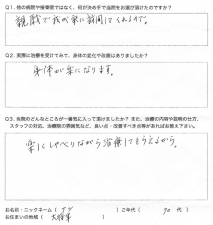 Q1. 他の病院や接骨院ではなく、何が決め手で当院をお選び頂けたのですか?
親戚で我が家に訪問してくれるので。
Q2. 実際に治療を受けてみて、身体の変化や改善はありましたか?
身体が楽になります。
Q3. 当院のどんなところが一番気に入って頂けましたか? また、治療の内容や説明の仕方、
スタッフの対応、治療院の雰囲気など、良い点・改善すべき点等があればお教え下さい。
楽にしゃべりながら治療してもらえるから。
お名前・ニックネーム( )ご年代( 70 代 )
お住まいの地域( 大将軍 )